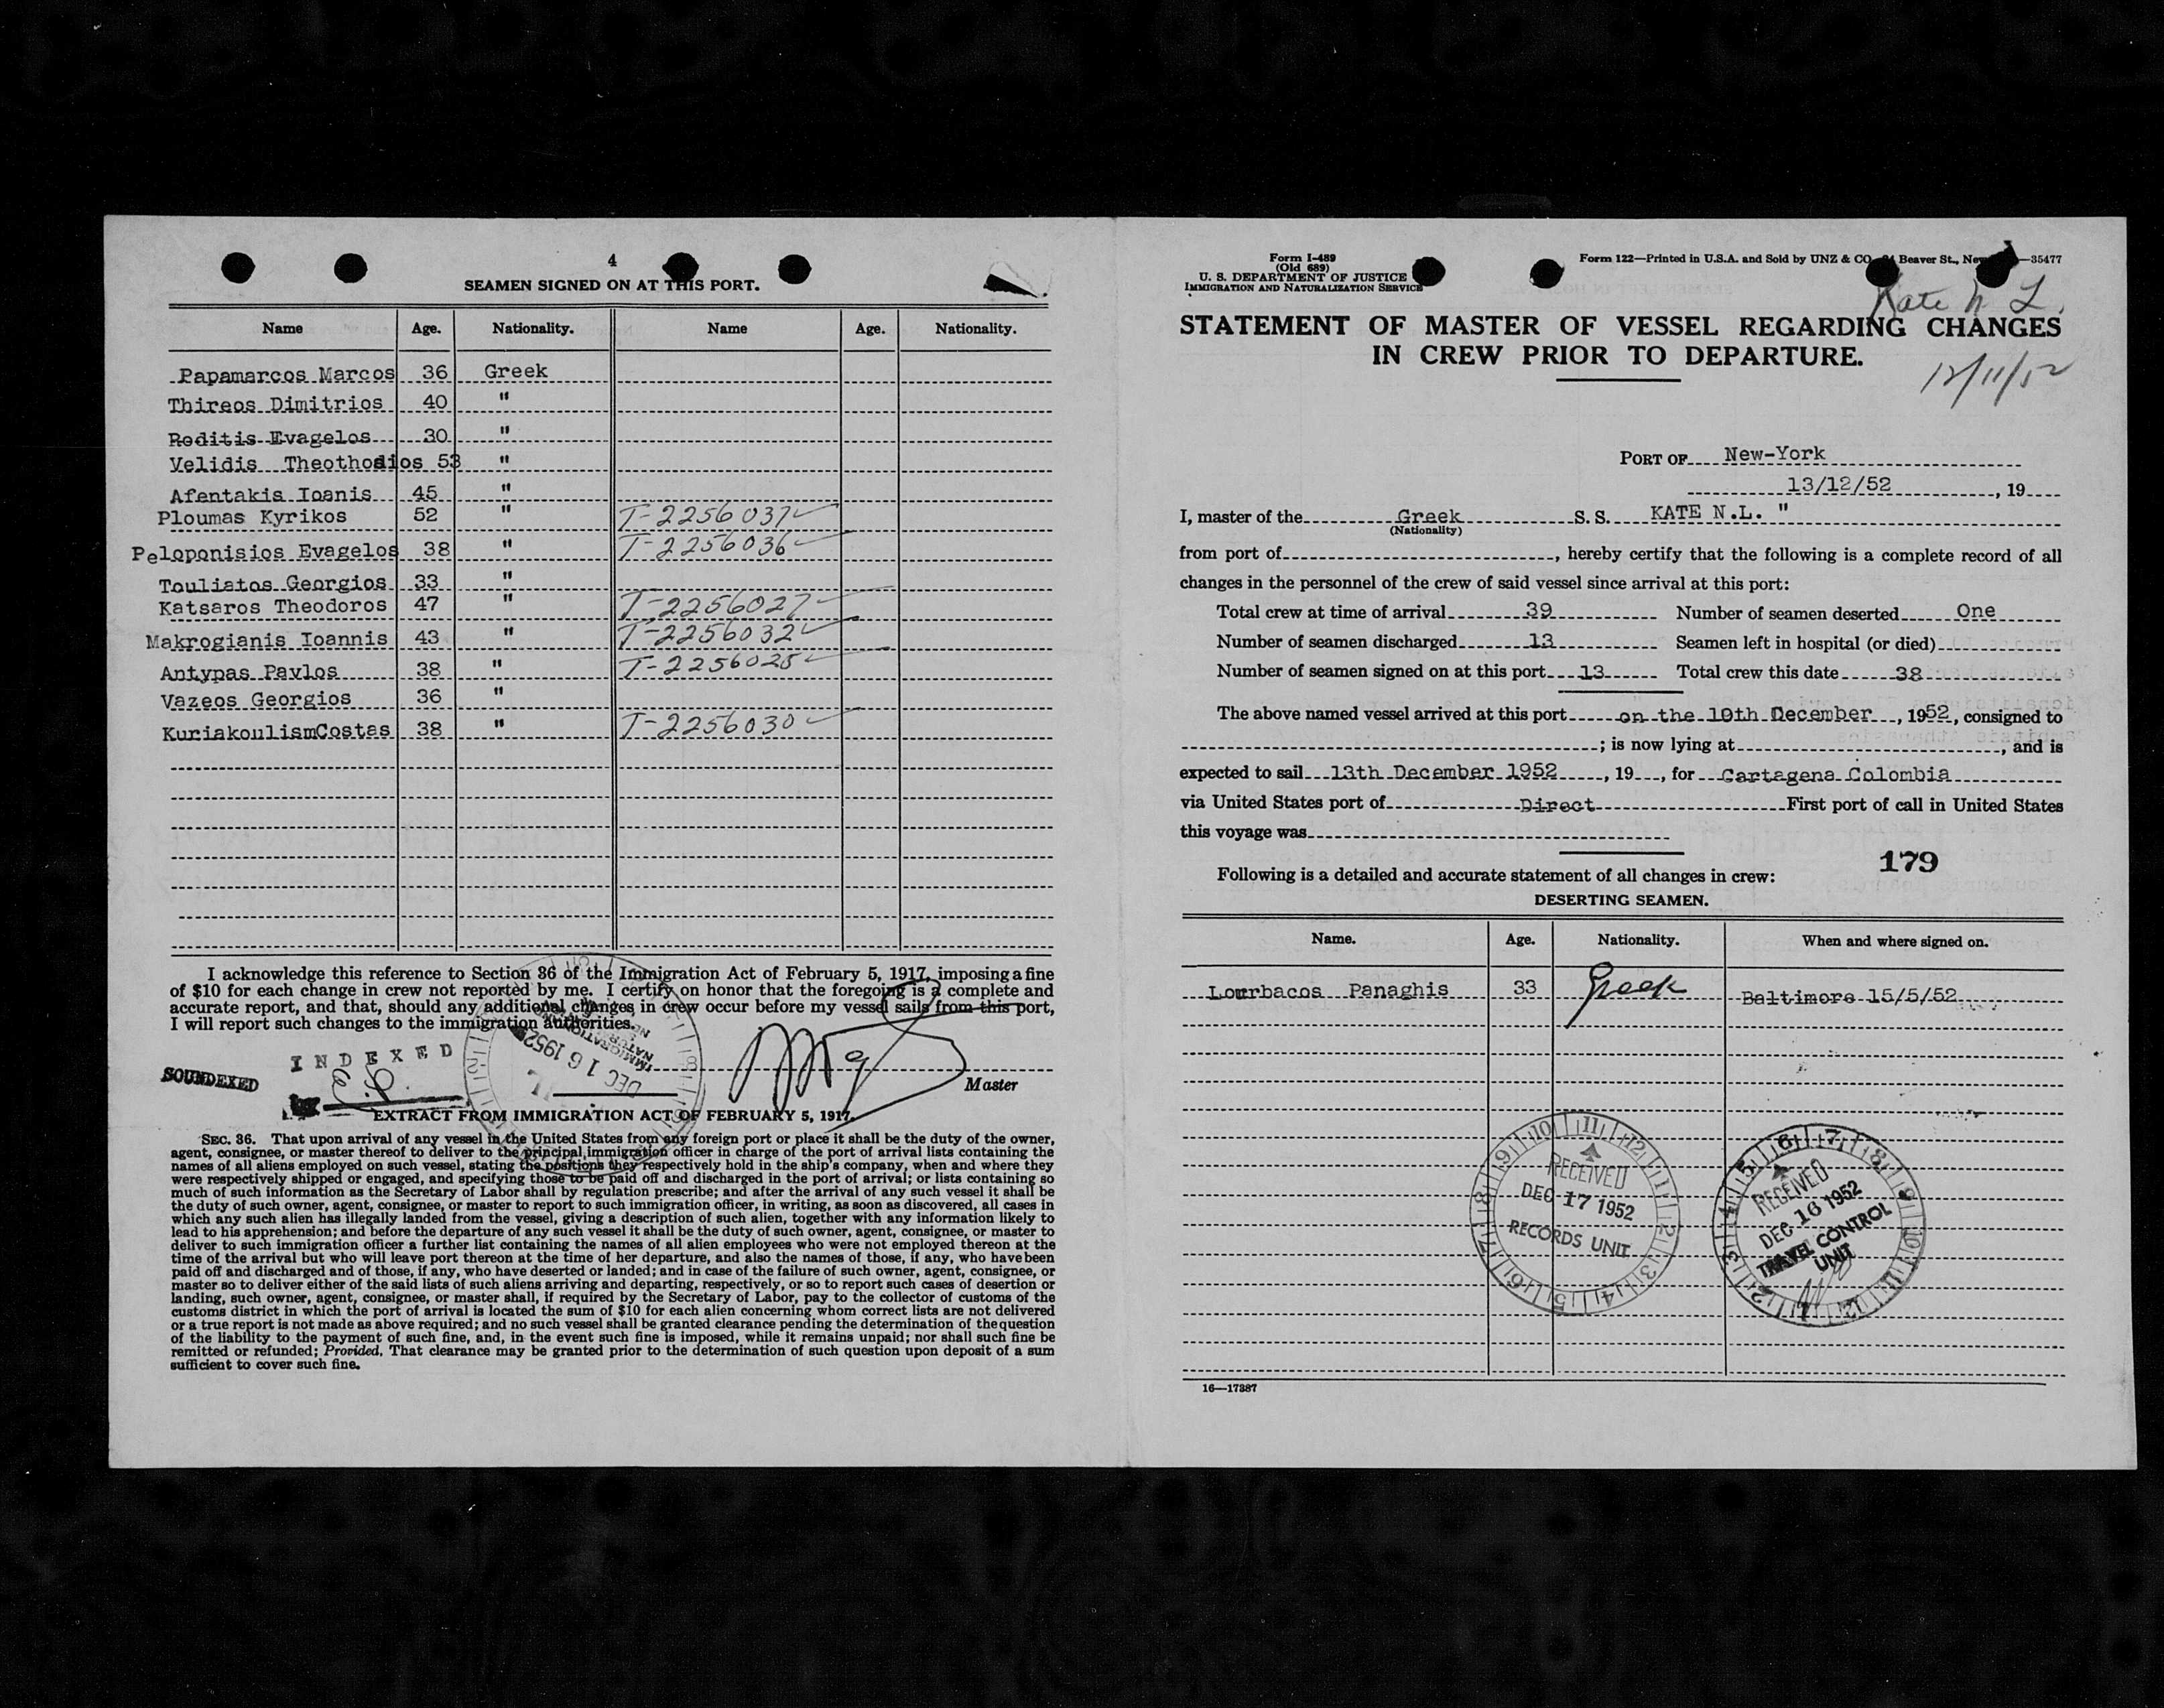 4
SEAMEN SIGNED ON AT THIS PORT.
Name Age. Nationality. Name Age. Nationality.
Papamarcos Marcos 36 Greek
Thireos Dimitrios 40 "
Reditis Evagelos 30 "
Velidis Theothosios 53 "
Afentakis Ioanis 45 "
Ploumas Kyrikos 52 " T-2256037
Peloponisios Evagelos 38 " T-2256036
Touliatos Georgios 33 "
Katsaros Theodoros 47 " T-2256027
Makrogianis Ioannis 43 " T-2256032
Antypas Pavlos 38 " T-2256025
Vazeos Georgios 36 "
KuriakoulismCostas 38 " T-2256030
I acknowledge this reference to Section 36 of the Immigration Act of February 5, 1917, imposing a fine
of $10 for each change in crew not reported by me. I certify on honor that the foregoing is a complete and
accurate report, and that, should any additional changes in crew occur before my vessel sails from this port,
I will report such changes to the immigration authorities.
INDEXED
SOUNDEXED
DEC 16 1952
Master
EXTRACT FROM IMMIGRATION ACT OF FEBRUARY 5, 1917.
SEC. 36. That upon arrival of any vessel in the United States from any foreign port or place it shall be the duty of the owner,
agent, consignee, or master thereof to deliver to the principal immigration officer in charge of the port of arrival lists containing the
names of all aliens employed on such vessel, stating the positions they respectively hold in the ship's company, when and where they
were respectively shipped or engaged, and specifying those to be paid off and discharged in the port of arrival; or lists containing so
much of such information as the Secretary of Labor shall by regulation prescribe; and after the arrival of any such vessel it shall be
the duty of such owner, agent, consignee, or master to report to such immigration officer, in writing, as soon as discovered, all cases in
which any such alien has illegally landed from the vessel, giving a description of such alien, together with any information likely to
lead to his apprehension; and before the departure of any such vessel it shall be the duty of such owner, agent, consignee, or master to
deliver to such immigration officer a further list containing the names of all alien employees who were not employed thereon at the
time of the arrival but who will leave port thereon at the time of her departure, and also the names of those, if any, who have been
paid off and discharged and of those, if any, who have deserted or landed; and in case of the failure of such owner, agent, consignee, or
master so to deliver either of the said lists of such aliens arriving and departing, respectively, or so to report such cases of desertion or
landing, such owner, agent, consignee, or master shall, if required by the Secretary of Labor, pay to the collector of customs of the
customs district in which the port of arrival is located the sum of $10 for each alien concerning whom correct lists are not delivered
or a true report is not made as above required; and no such vessel shall be granted clearance pending the determination of the question
of the liability to the payment of such fine, and, in the event such fine is imposed, while it remains unpaid; nor shall such fine be
remitted or refunded; Provided, That clearance may be granted prior to the determination of such question upon deposit of a sum
sufficient to cover such fine.
Form I-489
(Old 689)
U. S. DEPARTMENT OF JUSTICE
IMMIGRATION AND NATURALIZATION SERVICE
Form 122—Printed in U.S.A. and Sold by UNZ & CO. Beaver St., —35477
Kate N. L.
STATEMENT OF MASTER OF VESSEL REGARDING CHANGES
IN CREW PRIOR TO DEPARTURE.
12/11/52
PORT OF New-York
13/12/52, 19
I, master of the Greek S. S. KATE N.L. "
(Nationality)
from port of, hereby certify that the following is a complete record of all
changes in the personnel of the crew of said vessel since arrival at this port:
Total crew at time of arrival 39 Number of seamen deserted One
Number of seamen discharged 13 Seamen left in hospital (or died)
Number of seamen signed on at this port 13 Total crew this date 38
The above named vessel arrived at this port on the 10th December, 1952, consigned to
; is now lying at, and is
expected to sail 13th December 1952, 19, for Cartagena Colombia
via United States port of Direct First port of call in United States
this voyage was
179
Following is a detailed and accurate statement of all changes in crew:
DESERTING SEAMEN.
Name. Age. Nationality. When and where signed on.
Lourbacos Panaghis 33 Greek Baltimore 15/5/52
RECEIVED
DEC 17 1952
RECORDS UNIT
RECEIVED
DEC 16 1952
TRAVEL CONTROL
UNIT
16—17387